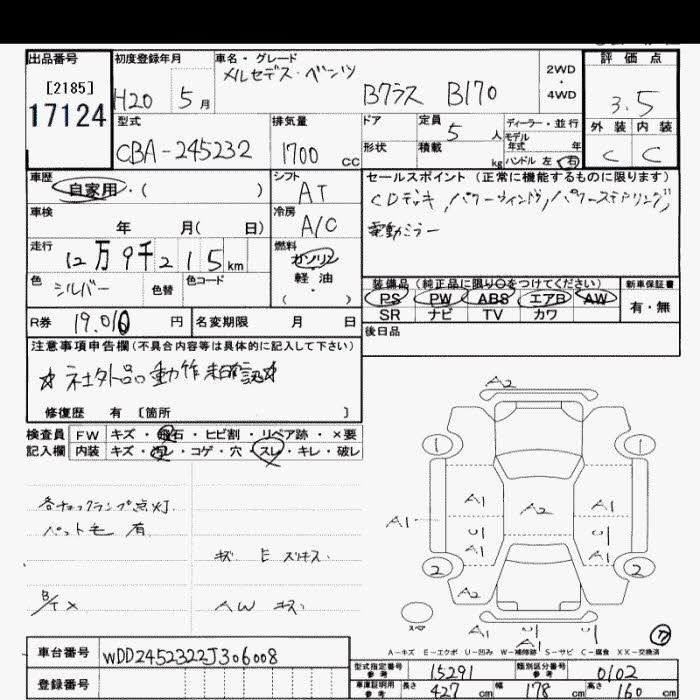 出品番号 初度登録年月 車名・グレード 評価点
[2185] メルセデス・ベンツ 2WD
17124 H20 5月 Bクラス B170 4WD 3.5
型式 排気量 ドア 定員 5人 ディーラー・並行 外装 内装
モデル年式 年
CBA-245232 1700cc 形状 積載 kg ハンドル 左 右 C C
車歴 シフト セールスポイント (正常に機能するものに限ります)
自家用・( ) AT CDデッキ,パワーウィンドウ,パワーステアリング,
車検 冷房 電動ミラー
年 月( 日) A/C
走行 燃料
12万9千215km ガソリン
色 シルバー 色替 色コード 軽油 装備品 (純正品に限り○をつけてください) 新車保証書
( ) PS PW ABS エアB AW 有・無
R券 19.010円 名変期限 月 日 SR ナビ TV カワ
注意事項申告欄(不具合内容等は具体的に記入して下さい) 後日品
☆社外品の動作未確認☆
修復歴 有 [箇所 ]
検査員 FW キズ・飛石・ヒビ割・リペア跡・×要
記入欄 内装 キズ・汚レ・コゲ・穴・スレ・キレ・破レ
各チェックランプ点灯
ペット毛 有
キズ E ズリキズ.
B/T X AW キズ.
A2
1 1
A1 A1
A1 A2
U U
A1 A1
2 2
A2
U
A1
スペア
A-キズ E-エクボ U-凹み W-補修跡 S-サビ C-腐食 XX-交換済
車台番号 WDD2452322J306008
登録番号
型式指定番号 参考 15291 類別区分番号 参考 0102
車庫証明用 参考 長さ 427cm 幅 178cm 高さ 160cm